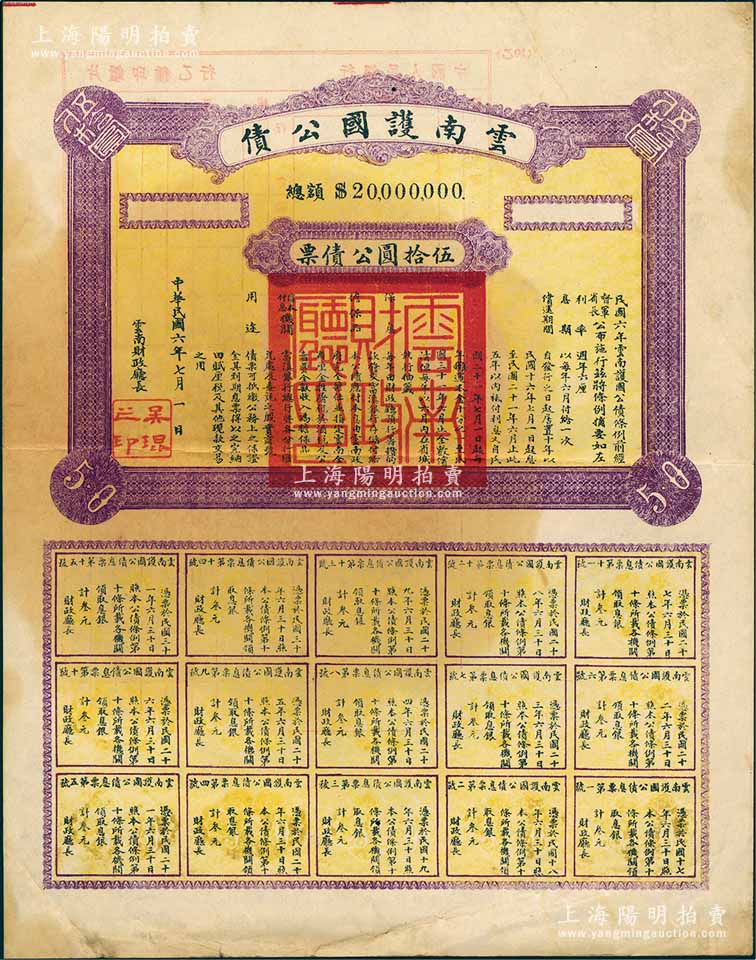 上海陽明拍賣
www.yangmingauction.com
雲南護國公債
總額 $20,000,000.
伍拾圓公債票
伍拾圓
伍拾圓
民國六年雲南護國公債條例前經
督軍
省長
公布施行茲將條例摘要如左
利率 週年六厘
息期 以每年六月付給一次
償還期間 自發行之日起居置十年以
民國十六年七月一日起息
至民國二十一年六月止此
五年以內祇付利息又自民
國二十一年七月一日起
擔保品
還本付息機關
用途 債票可抵繳公務上之保證
金其到期息票得以之完納
田賦厘稅及其他現款交易
之用
中華民國六年七月一日
雲南財政廳長
吳琨之印
50
50
上海陽明拍賣
www.yangmingauction.com
雲南護國公債息票第十一號
憑票於民國二十
七年六月三十日
照本公債條例第
十條所載各機關
領取息銀
計叁元
財政廳長
雲南護國公債息票第十二號
憑票於民國二十
八年六月三十日
照本公債條例第
十條所載各機關
領取息銀
計叁元
財政廳長
雲南護國公債息票第十三號
憑票於民國二十
九年六月三十日
照本公債條例第
十條所載各機關
領取息銀
計叁元
財政廳長
雲南護國公債息票第十四號
憑票於民國三十
年六月三十日照
本公債條例第十
條所載各機關領
取息銀
計叁元
財政廳長
雲南護國公債息票第十五號
憑票於民國三十
一年六月三十日
照本公債條例第
十條所載各機關
領取息銀
計叁元
財政廳長
雲南護國公債息票第六號
憑票於民國二十
二年六月三十日
照本公債條例第
十條所載各機關
領取息銀
計叁元
財政廳長
雲南護國公債息票第七號
憑票於民國二十
三年六月三十日
照本公債條例第
十條所載各機關
領取息銀
計叁元
財政廳長
雲南護國公債息票第八號
憑票於民國二十
四年六月三十日
照本公債條例第
十條所載各機關
領取息銀
計叁元
財政廳長
雲南護國公債息票第九號
憑票於民國二十
五年六月三十日
照本公債條例第
十條所載各機關
領取息銀
計叁元
財政廳長
雲南護國公債息票第十號
憑票於民國二十
六年六月三十日
照本公債條例第
十條所載各機關
領取息銀
計叁元
財政廳長
雲南護國公債息票第一號
憑票於民國十七
年六月三十日照
本公債條例第十
條所載各機關領
取息銀
計叁元
財政廳長
雲南護國公債息票第二號
憑票於民國十八
年六月三十日照
本公債條例第十
條所載各機關領
取息銀
計叁元
財政廳長
雲南護國公債息票第三號
憑票於民國十九
年六月三十日照
本公債條例第十
條所載各機關領
取息銀
計叁元
財政廳長
雲南護國公債息票第四號
憑票於民國二十
年六月三十日照
本公債條例第十
條所載各機關領
取息銀
計叁元
財政廳長
雲南護國公債息票第五號
憑票於民國二十
一年六月三十日
照本公債條例第
十條所載各機關
領取息銀
計叁元
財政廳長
上海陽明拍賣
www.yangmingauction.com